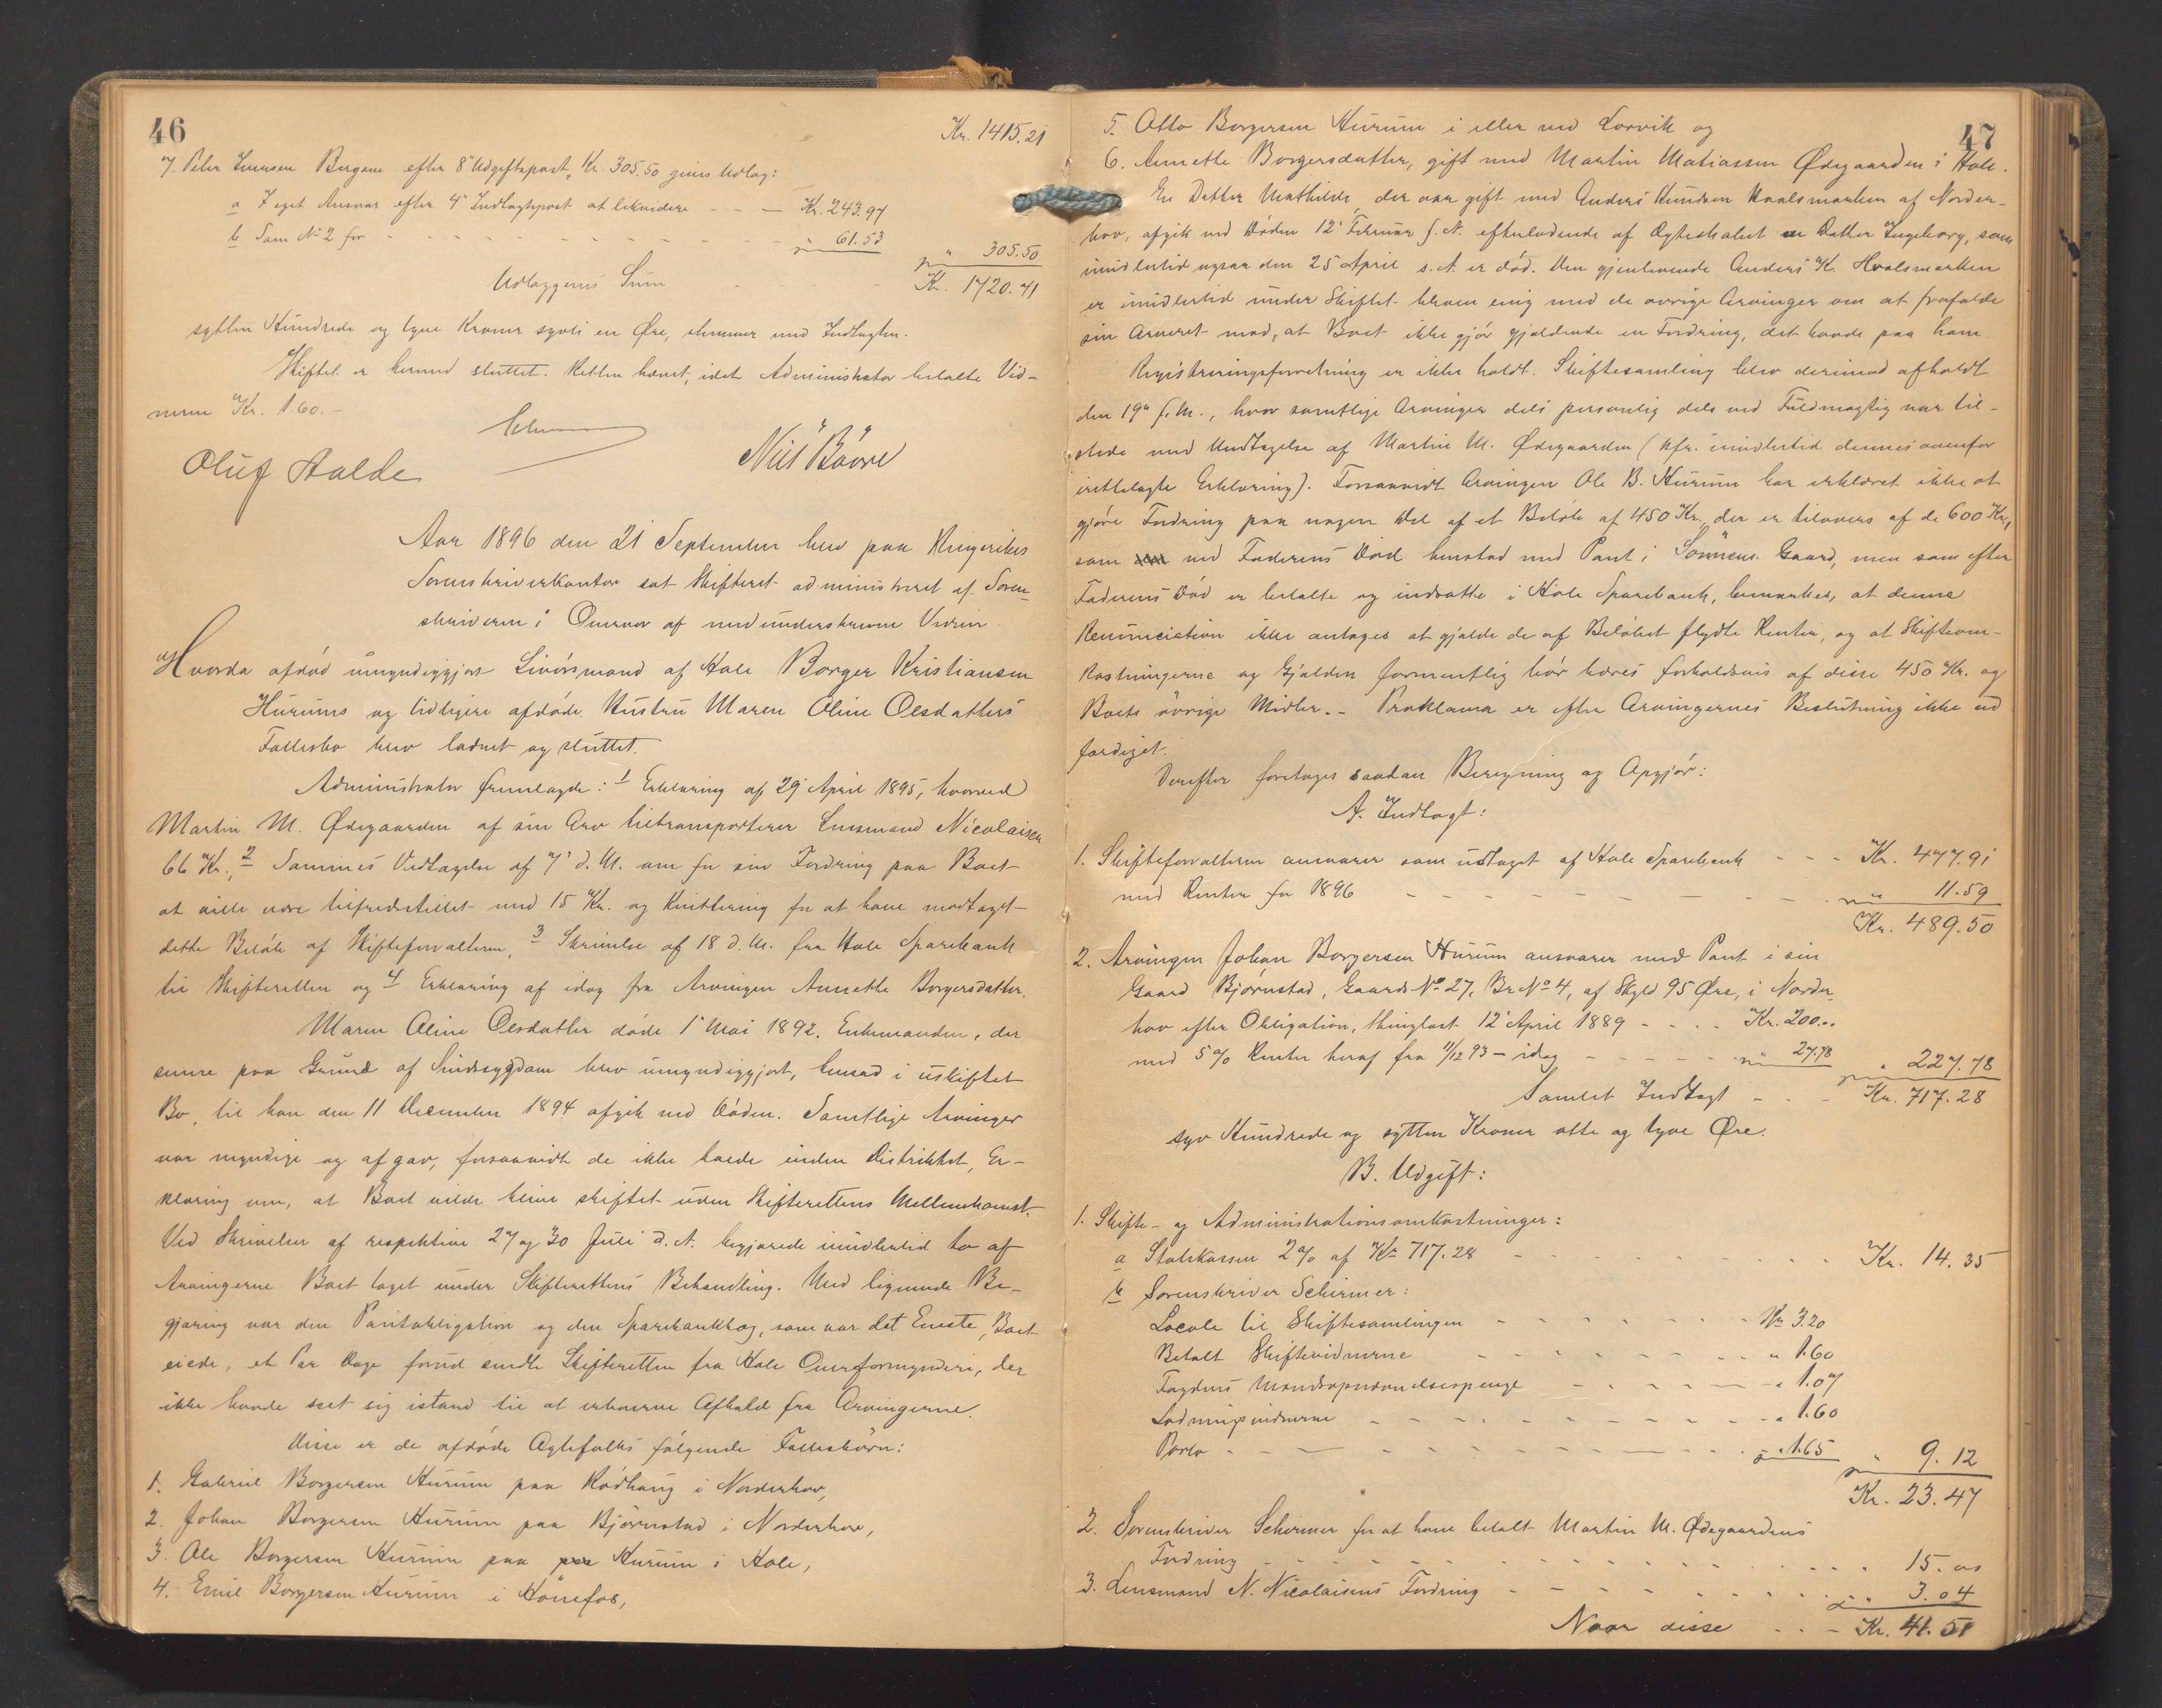 46
Kr. 1415.21
7. Peter Bergem efter 8' Udgiftspost, Kr. 305.50 gives Udlæg:
a I eget Ansvar efter 4' Indtægtspost at likvidere - - - Kr. 243.97
b Sam. No 2 for - - - - - - - - - " 61.53
" 305.50
Udlæggenes Sum - - - Kr. 1720.71
sytten Hundrede og tyve Kroner syvti en Øre, stemmer med Indtægten.
Skiftet er hermed sluttet. Retten hævet, idet Administrator betalte Vid-
nerne Kr. 1.60.-
Oluf Halde
Aar 1896 den 21 September blev paa Ringerikes
Sorenskriverkontor sat Skifteret administreret af Soren-
skriveren i Overvær af medunderskrevne Vidner
Hvorda afdød umyndiggjort Livørsmand af Hole Borger Kristiansen
Hurums og tidligere afdøde Hustru Maren Oline Olsdatters
Fællesbo blev ladnet og sluttet.
Administrator fremlagde: 1 Erklæring af 29 April 1895, hvorved
Martin M. Ødegaarden af sin Arv tiltransporterer Lensmand Nicolaisen
66 Kr., 2 Sammes Vedtagelse af 7' d. M. om for sin Fordring paa Boet
at ville være tilfredsstillet med 15 Kr. og Kvittering for at have modtaget
dette Beløb af Skifteforvalteren, 3 Skrivelse af 18 d. M. fra Hole Sparebank
til Skifteretten og 4 Erklæring af idag fra Arvingen Annette Borgersdatter.
Maren Oline Olsdatter døde 1' Mai 1892. Enkemanden, der
senere paa Grund af Sindssygdom blev umyndiggjort, hensad i uskiftet
Bo, til han den 11 December 1894 afgik ved Døden. Samtlige Arvinger
var myndige og afgav, forsaavidt de ikke boede inden Distriktet, Er-
klæring om, at Boet vilde blive skiftet uden Skifterettens Mellemkomst.
Ved Skrivelser af respektive 27 og 30 Juli d. A. begjærede imidlertid to af
Arvingerne Boet taget under Skifterettens Behandling. Med lignende Be-
gjæring var den Pantobligation og den Sparebankbog, som var det Eneste, Boet
eiede, et Par Dage forud sendte Skifteretten fra Hole Overformynderi, der
ikke havde seet sig istand til at erhverve Afkald fra Arvingerne.
Disse er de afdøde Ægtefolks følgende Fællesbørn:
1. Gabriel Borgersen Hurum paa Rødhaug i Norderhov,
2. Johan Borgersen Hurum paa Bjørnstad i Norderhov,
3. Ole Borgersen Hurum paa paa Hurum i Hole,
4. Emil Borgersen Hurum i Hønefos,
47
5. Otto Borgersen Hurum i eller ved Larvik og
6. Annette Borgersdatter, gift med Martin Matiassen Ødegaarden i Hole.
En Datter Mathilde, der var gift med Anders Knudsen Hvalsmarken af Norder-
hov, afgik ved Døden 12' Februar f. A. efterladende af Ægteskabet en Datter Ingeborg, som
imidlertid ogsaa den 25 April s. A. er død. Den gjenlevende Anders K. Hvalsmarken
er imidlertid under Skiftet bleven enig med de øvrige Arvinger om at frafalde
sin Arveret mod, at Boet ikke gjør gjældende en Fordring, det havde paa ham.
Registreringsforretning er ikke holdt. Skiftesamling blev derimod afholdt
den 19' f. M., hvor samtlige Arvinger dels personlig dels ved Fuldmægtig var til-
stede med Undtagelse af Martin M. Ødegaarden (kfr. imidlertid dennes ovenfor
irettelagte Erklæring). Forsaavidt Arvingen Ole B. Hurum har erklæret ikke at
gjøre Fordring paa nogen Del af et Beløb af 450 Kr., der er tilovers af de 600 Kr.,
som ved Faderens Død henstod med Pant i Sønnens Gaard, men som efter
Faderens Død er betalte og indsatte i Hole Sparebank, bemærkes, at denne
Renunciation ikke antages at gjælde de af Beløbet flydte Renter, og at Skifteom-
kostningerne og Gjælden formentlig bør bæres forholdsvis af disse 450 Kr. og
Boets øvrige Midler. - Proklama er efter Arvingernes Beslutning ikke ud
færdiget.
Derefter foretages saadan Beregning og Opgjør:
A. Indtægt:
1. Skifteforvalteren ansvarer som udtaget af Hole Sparebank - - - Kr. 477.91
med Renter for 1896 - - - - - - - - " 11.59
Kr. 489.50
2. Arvingen Johan Borgersen Hurum ansvarer med Pant i sin
Gaard Bjørnstad, Gaards No 27, Br. No 4, af Skyld 95 Øre, i Norder-
hov efter Obligation, thinglæst 12' April 1889 - - - - Kr. 200..
med 5 % Renter heraf fra 11/12 93 - idag - - - - - " 27.78
" 227.78
Samlet Indtægt - - - Kr. 717.28
syv Hundrede og sytten Kroner otte og tyve Øre.
B. Udgift:
1. Skifte- og Administrationsomkostninger:
a Statskassen 2 % af Kr. 717.28 - - - - - - Kr. 14.35
b Sorenskriver Schirmer:
Locale til Skiftesamlingen - - - - - - - Kr. 3.20
Betalt Skiftevidnerne - - - - - - - " 1.60
Fogdens Mandsopnævnelsespenge - - - - - - " 1.07
Ladningsvidnerne - - - - - - - - - " 1.60
Porto - - - - - - - - - - - " 1.65
" 9.12
Kr. 23.47
2. Sorenskriver Schirmer for at have betalt Martin M. Ødegaardens
Fordring - - - - - - - - - - " 15.00
3. Lensmand N. Nicolaisens Fordring - - - - - - " 3.04
Naar disse - - - Kr. 41.51